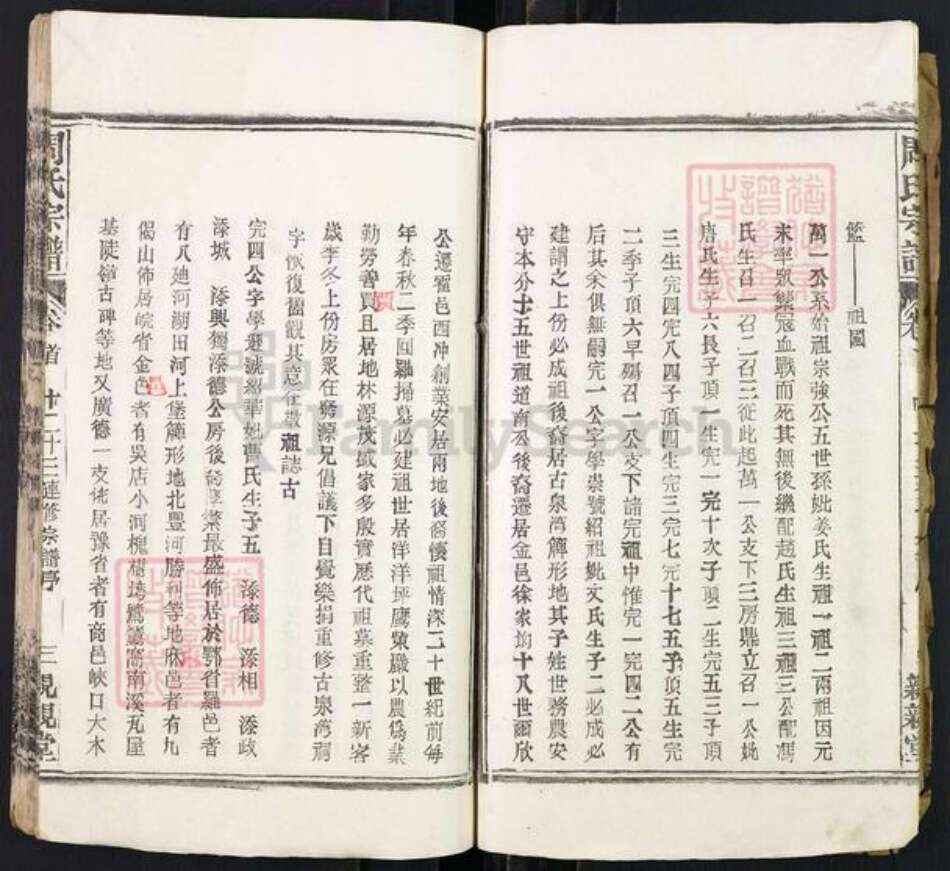 籃——祖國
萬一公系始祖宗強公五世孫妣姜氏生祖一祖二兩祖因元
末率眾禦寇血戰而死其無後繼配趙氏生祖三祖三公配馮
氏生召一召二召三從此起萬一公支下三房鼎立召一公妣
唐氏生子六長子頂一生完一完十次子頂二生完五三子頂
三生完四完八四子頂四生完三完七完十七五子頂五生完
二季子頂六早殤召一公支下諸完祖中惟完一完四二公有
后其余俱無嗣完一公字學崇號紹祖妣文氏生子二必成必
建謂之上份必成祖後裔居古泉灣簰形地其子姓世務農安
守本分十五世祖道南公後裔遷居金邑徐家坳十八世爾欣
公遷霍邑西沖創業安居兩地後裔懷祖情深二十世紀前每
年春秋二季回羅掃墓必建祖世居洋洋坪鷹窠巖以農為業
勤勞善賈且居地林源茂盛家多殷實歷代祖墓重整一新客
歲季冬上份房眾在 源兄倡議下自覺樂捐重修古泉灣祠
字恢復舊觀其意在敬祖誌古
完四公字學遜號紹華妣曹氏生子五 添德 添相 添政
添城 添興獨添德公房後裔 業最盛佈居於鄂省羅邑者
有八廸河湖田河上堡簰形地北豐河勝利等地麻邑者有九
偈山佈居皖省金邑者有吳店小河槐樹 鷺 窩南溪瓦屋
基陡 古碑等地又廣德一支徙居豫省者有商邑峽口大木
周氏宗譜
卷首 廿二廿三連修宗譜序 三 親親堂
周氏宗譜
卷
親親堂
FamilySearch